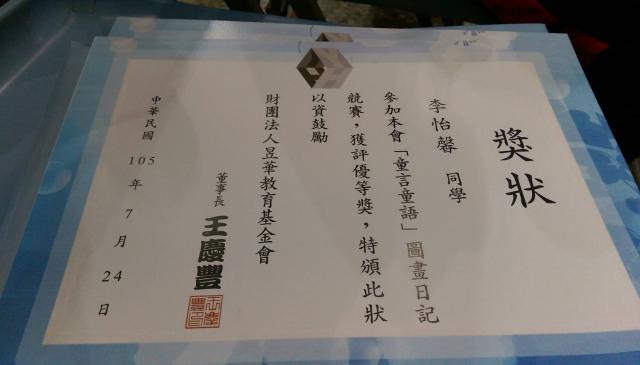 獎狀
李怡馨 同學
參加本會「童言童語」圖畫日記
競賽，獲評優等獎，特頒此狀
以資鼓勵
財團法人昱華教育基金會
董事長 王慶豐
中華民國 105 年 7 月 24 日